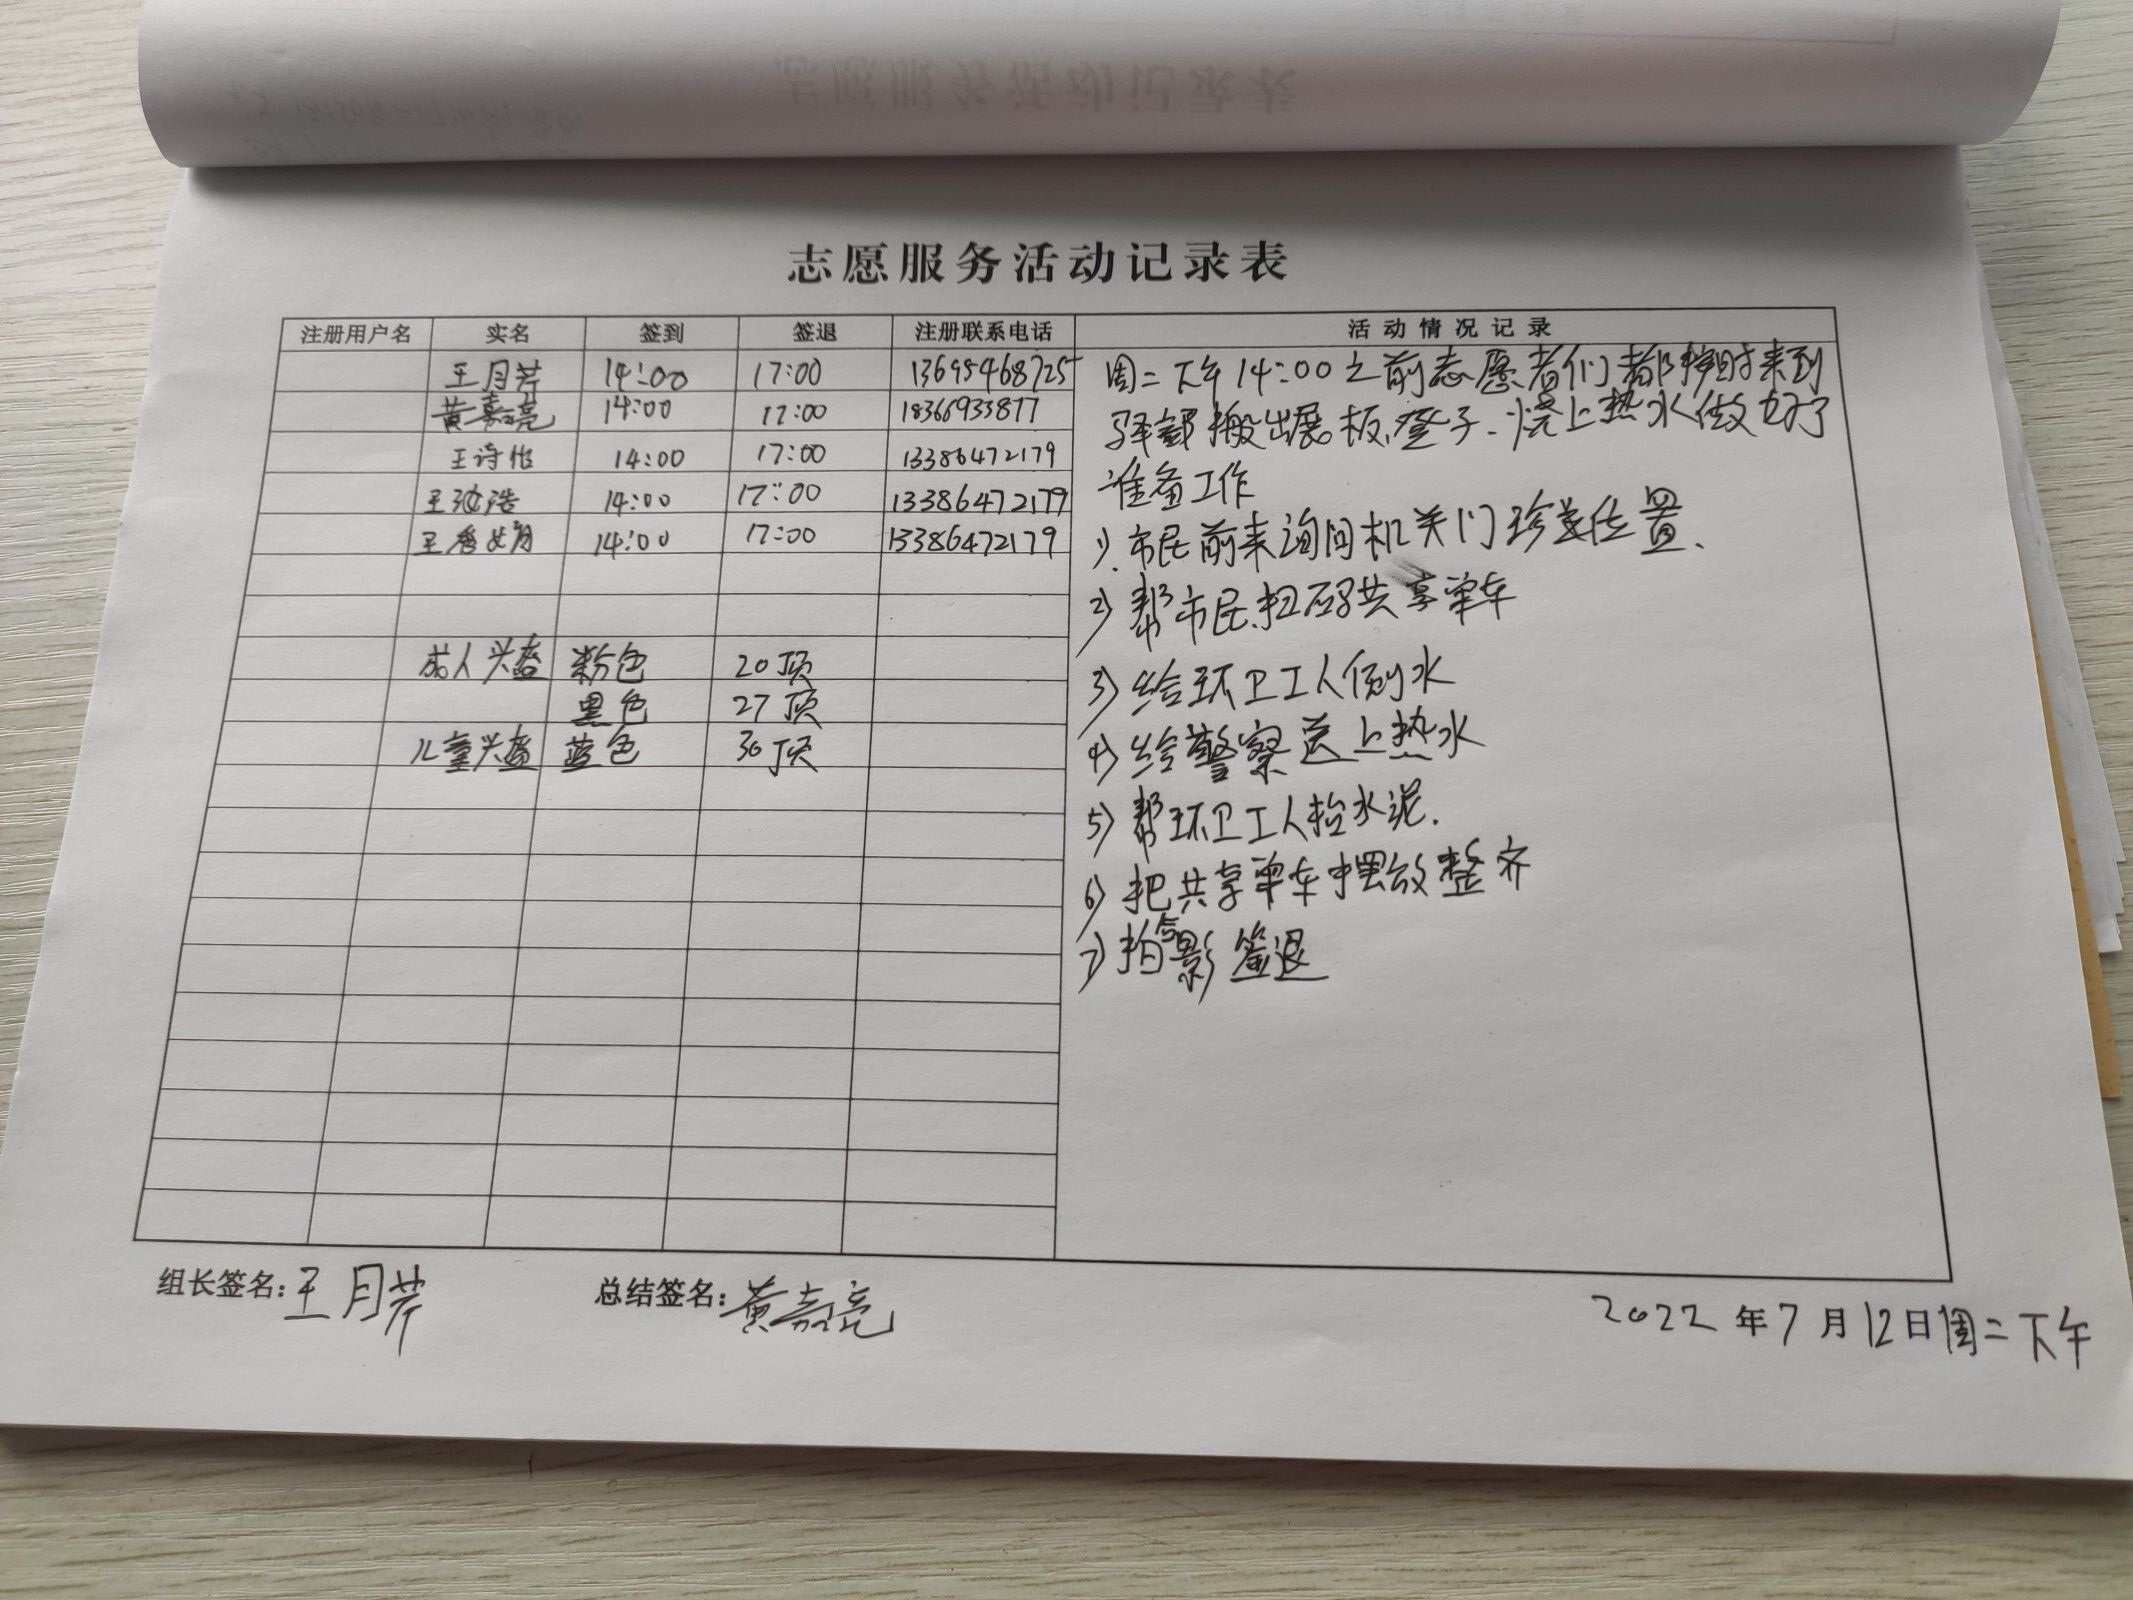 志愿服务活动记录表
注册用户名 实名 签到 签退 注册联系电话 活动情况记录
王月芹 14:00 17:00 13695468725
黄嘉亮 14:00 17:00 18366933877
王诗怡 14:00 17:00 13386472179
王 浩 14:00 17:00 13386472179
王 14:00 17:00 13386472179
成人头盔 粉色 20顶
黑色 27顶
儿童头盔 蓝色 30顶
周二下午14:00之前志愿者们都按时来到
驿部搬出展板、凳子、烧上热水做好了
准备工作
1)、市民前来询问机关门诊部位置、
2) 帮市民扫码共享单车
3) 给环卫工人倒水
4) 给警察送上热水
5) 帮环卫工人抬水泥.
6) 把共享单车摆放整齐
7) 拍合影签退
组长签名:王月芹 总结签名:黄嘉亮
2022年7月12日周二下午